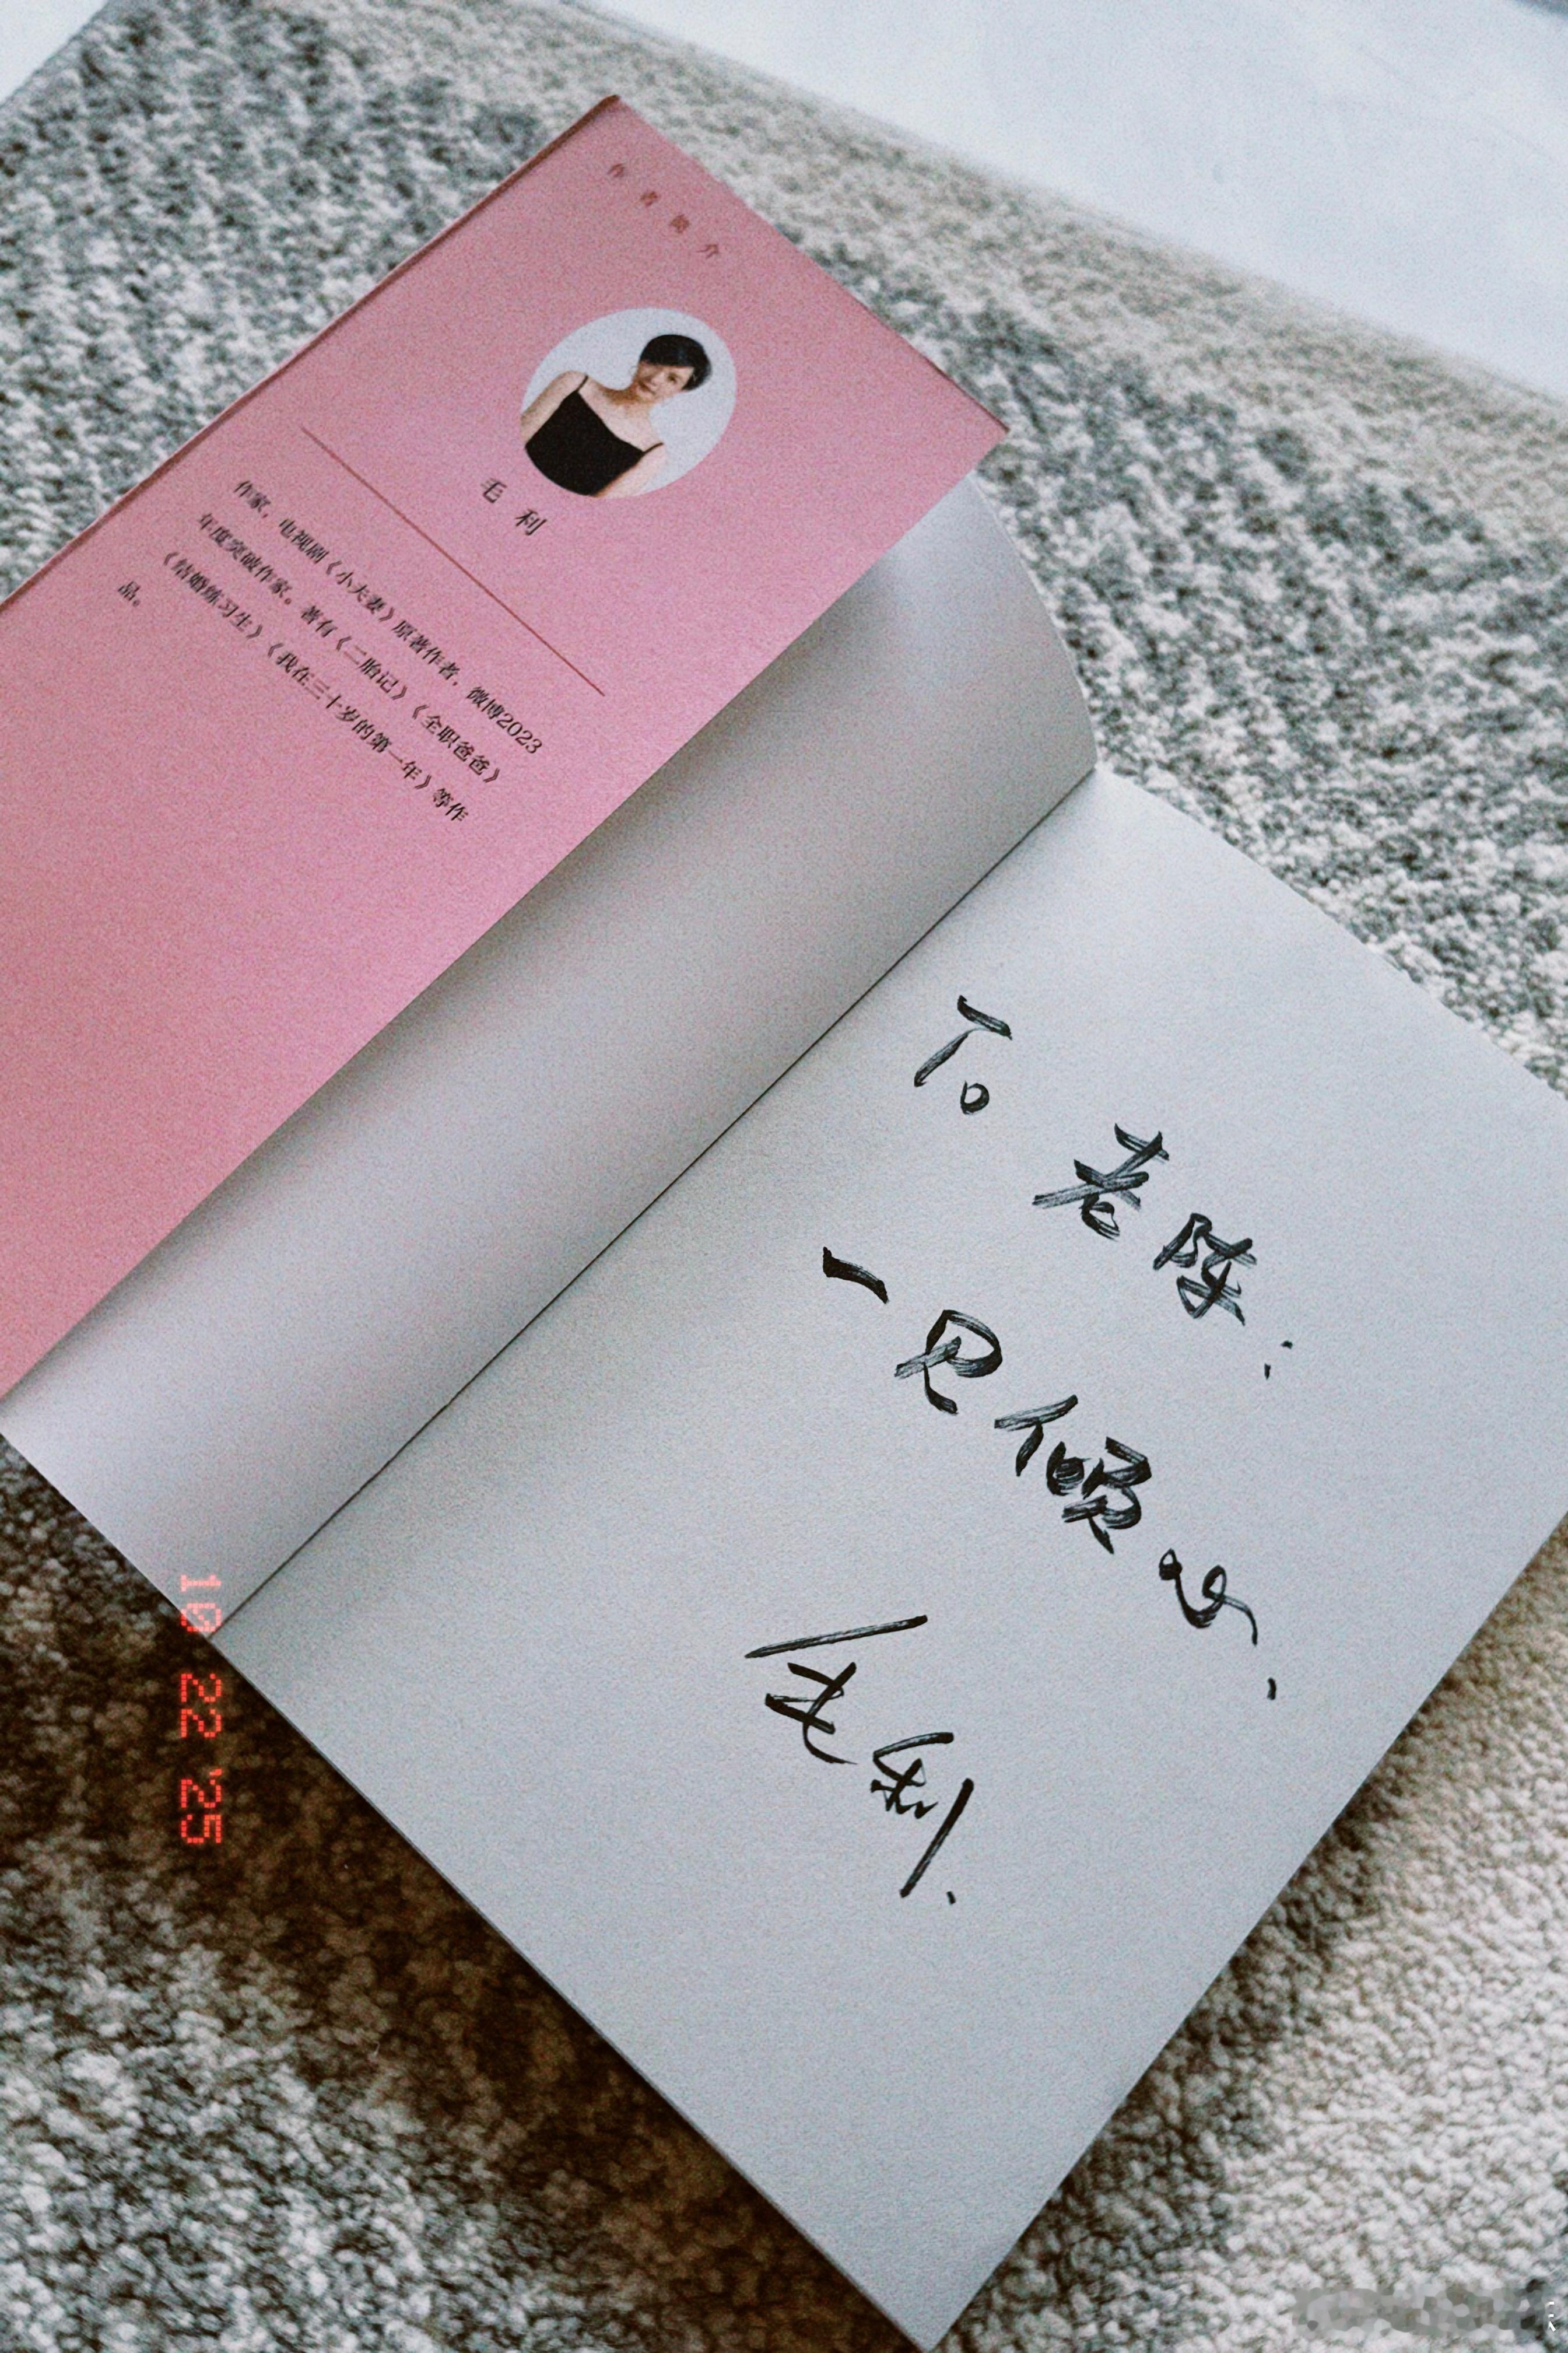 作者简介
毛利
作家，电视剧《小夫妻》原著作者，微博2023
年度突破作家。著有《二胎记》《全职爸爸》
《结婚练习生》《我在三十岁的第一年》等作
品。
To 老陈：
一见倾心.
毛利.
10 22 '25